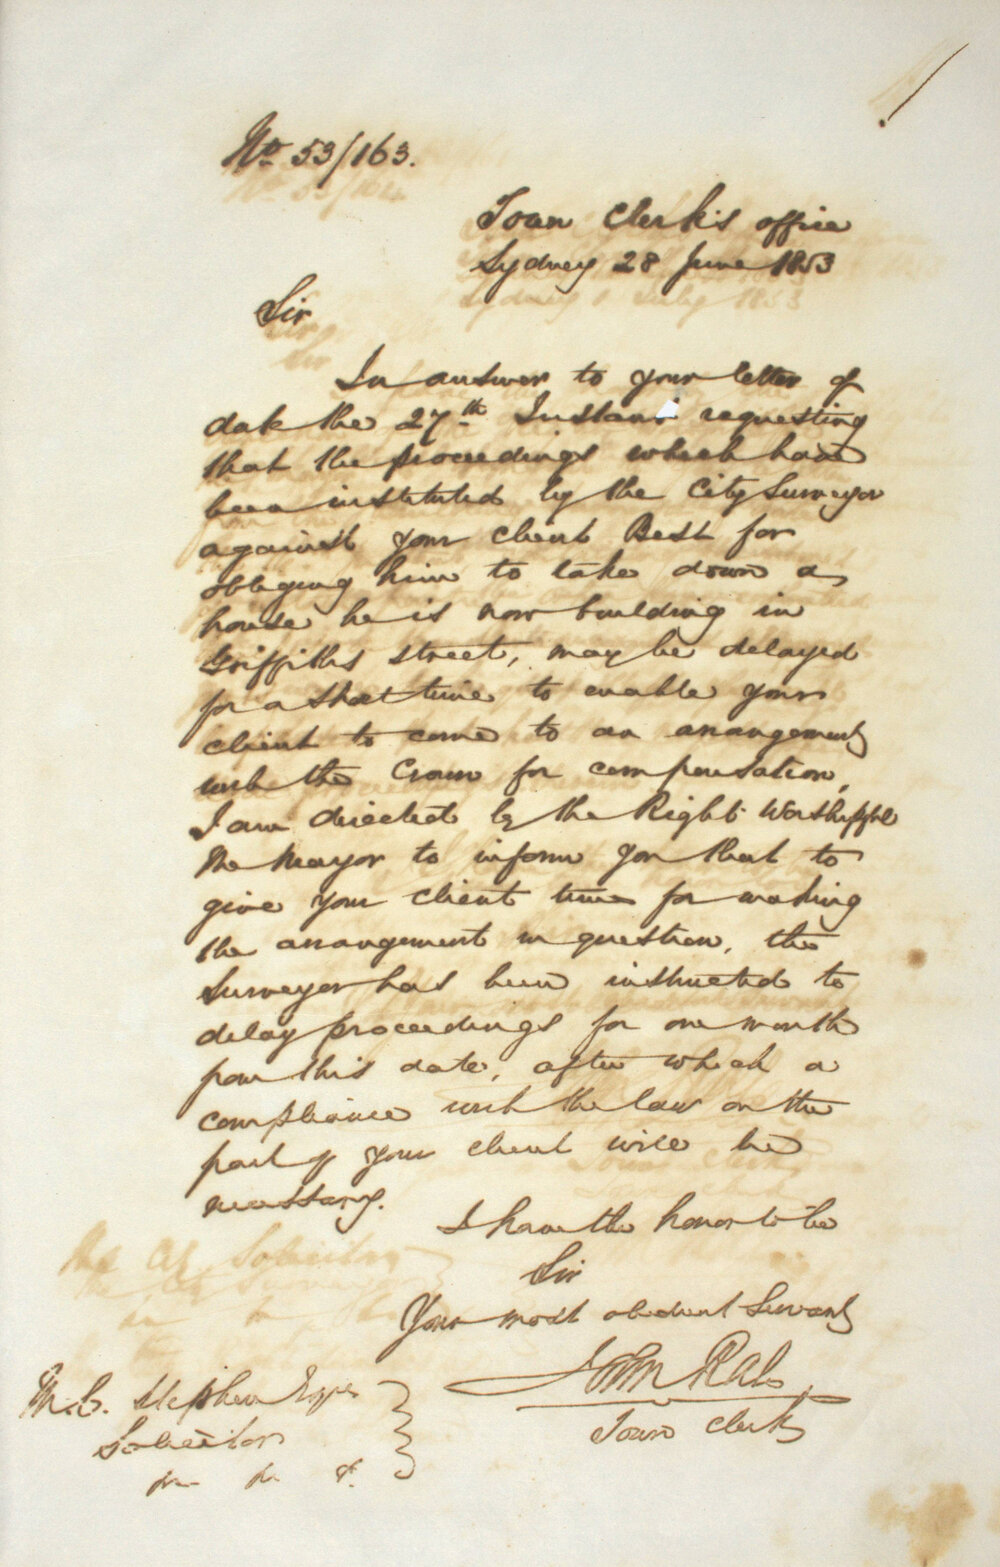 No. 53/163.
Town Clerk's office
Sydney 28 June 1853
Sir
In answer to your letter of
date the 27th Instant requesting
that the proceedings which have
been instituted by the City Surveyor
against your client Best for
obliging him to take down a
house he is now building in
Griffiths street, may be delayed
for a short time to enable your
client to come to an arrangement
with the Crown for compensation,
I am directed by the Right Worshipful
the Mayor to inform you that to
give your client time for making
the arrangement in question, the
Surveyor has been instructed to
delay proceedings for one month
from this date, after which a
compliance with the law on the
part of your client will be
necessary.
I have the honor to be
Sir
Your most obedient Servant
John Rae
Town Clerk
M.C. Stephen Esqre
Solicitor